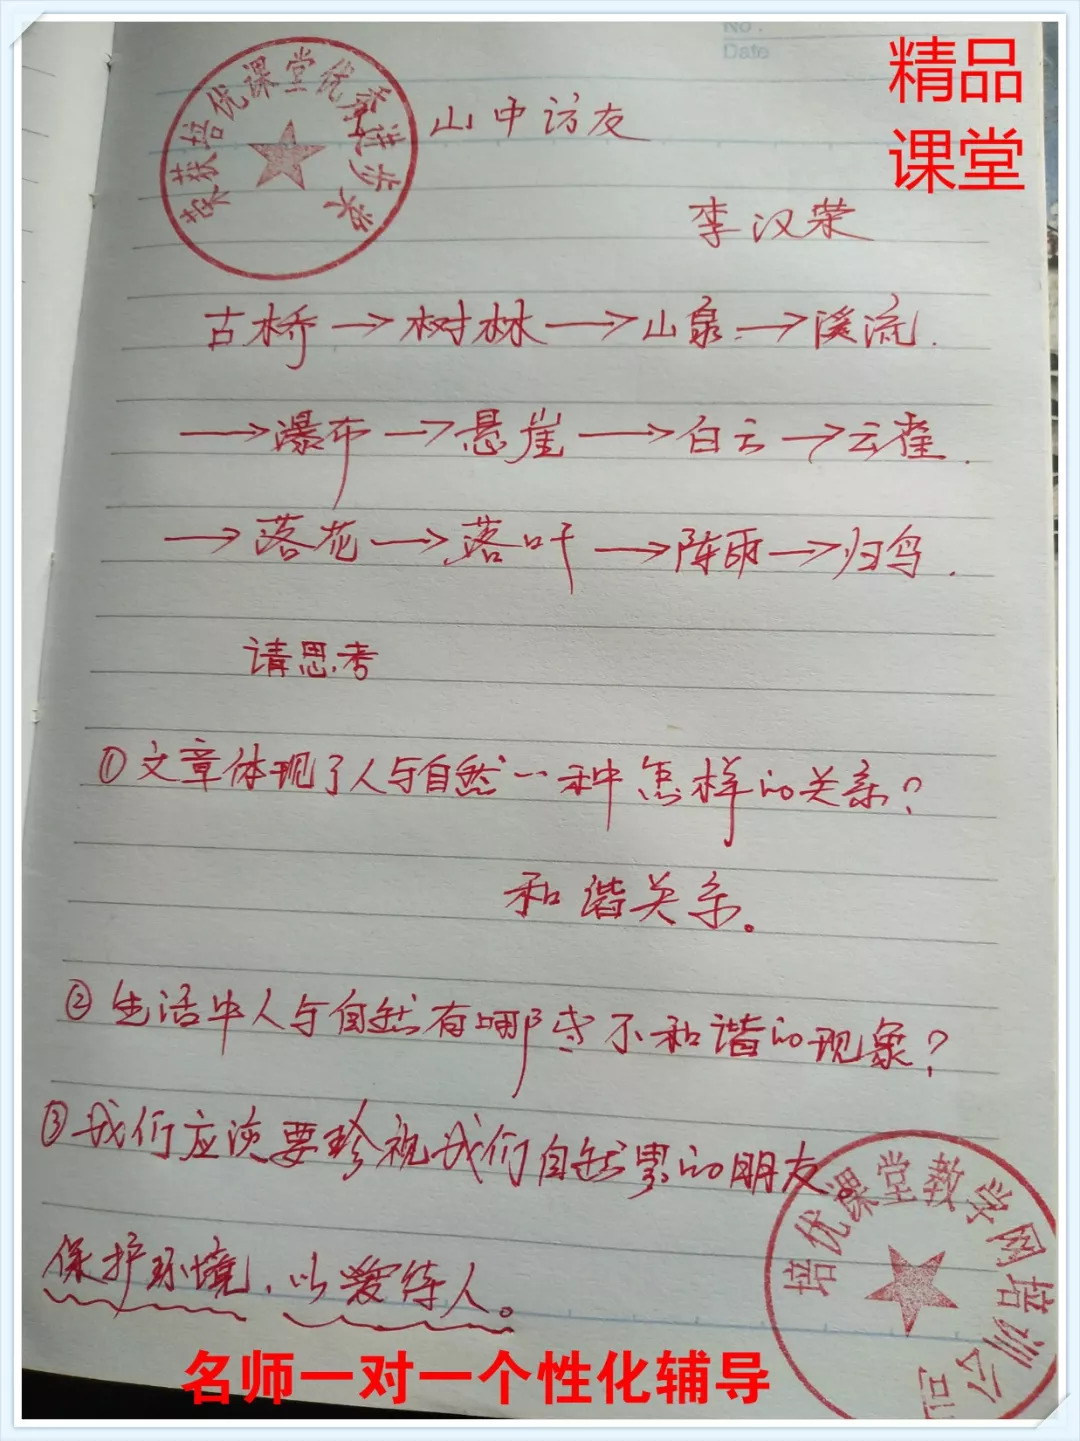 No:
Date
精品
课堂
荣获培优课堂优秀进步奖
山中访友
李汉荣
古桥→树林→山泉→溪流.
→瀑布→悬崖→白云→云雀.
→落花→落叶→阵雨→归鸟.
请思考
①文章体现了人与自然一种怎样的关系?
和谐关系。
②生活中人与自然有哪些不和谐的现象?
③我们应该要珍视我们自然界的朋友。
保护环境,以爱待人。
培优课堂教学网培训公司
名师一对一个性化辅导